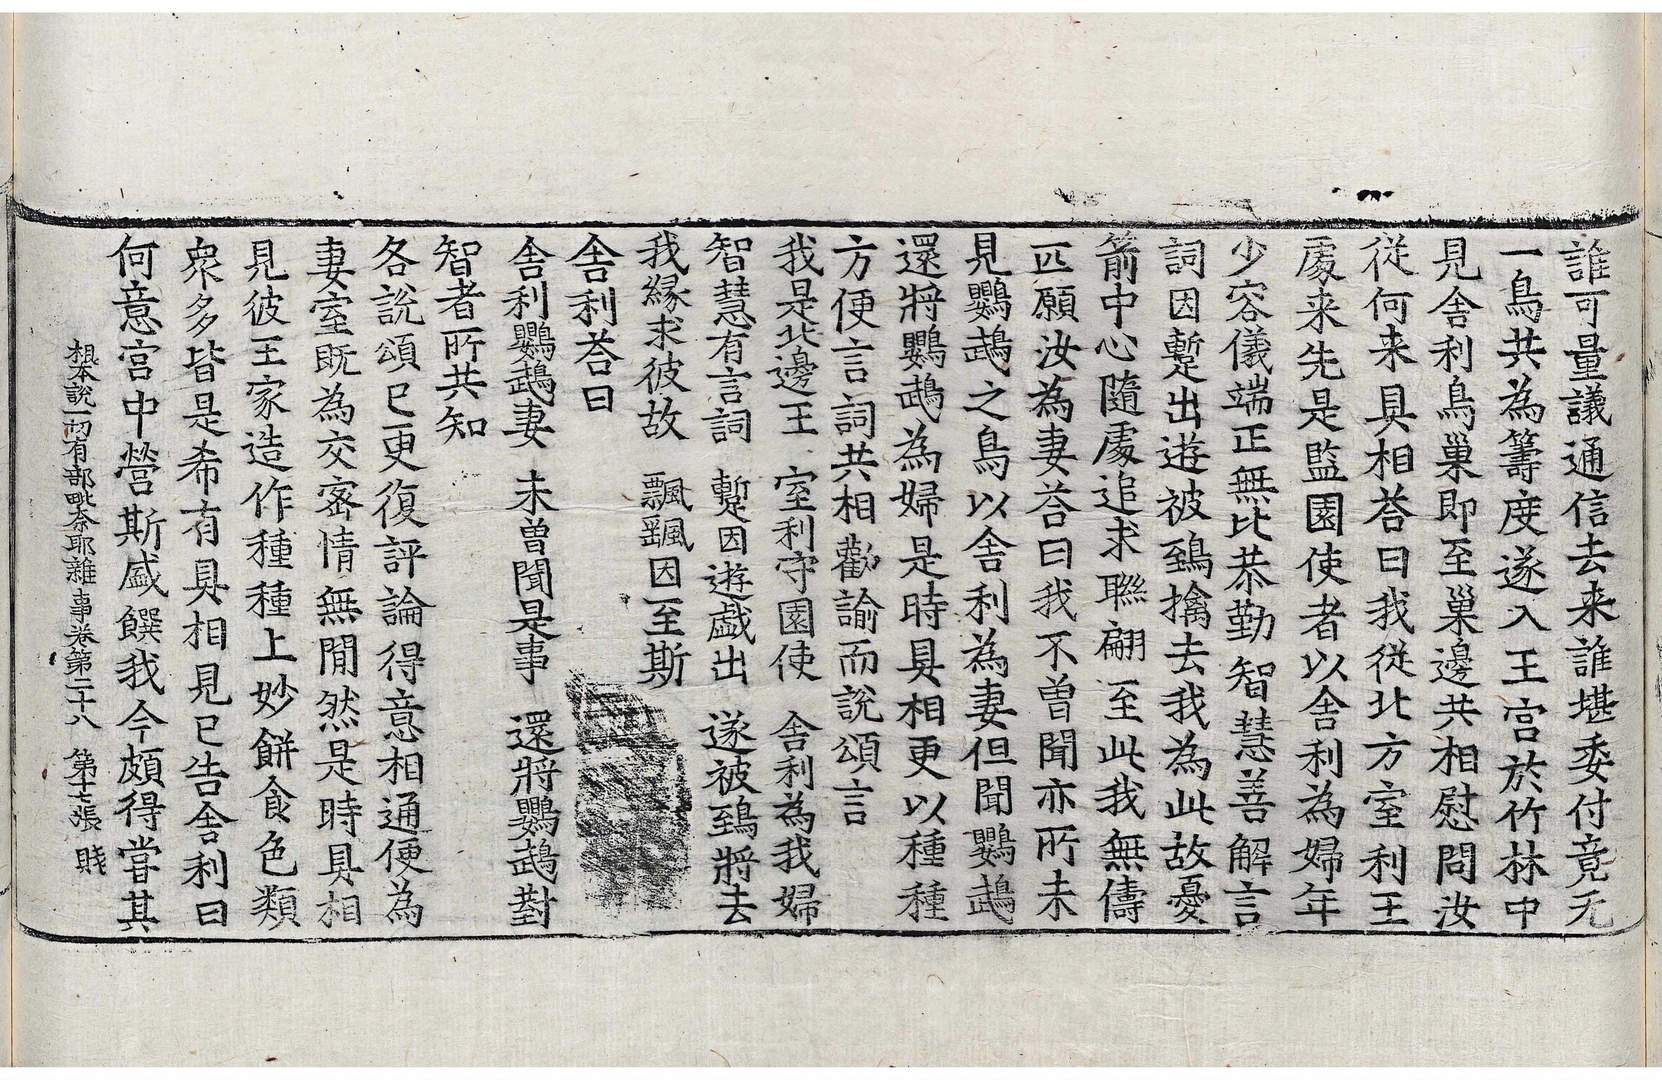 誰可量議通信去来誰堪委付竟无
一鳥共為籌度遂入王宫於竹林中
見舍利鳥巢即至巢邊共相慰問汝
從何来具相荅曰我從北方室利王
處来先是監園使者以舍利為婦年
少容儀端正無比恭勤智慧善解言
詞因蹔出遊被鵄擒去我為此故憂
箭中心隨處追求聯翩至此我無儔
匹願汝為妻荅曰我不曾聞亦所未
見鸚鵡之鳥以舍利為妻但聞鸚鵡
還將鸚鵡為婦是時具相更以種種
方便言詞共相勸諭而說頌言
我是北邊王　室利守園使　舍利為我婦
智慧有言詞　蹔因遊戲出　遂被鵄將去
我緣求彼故　飄颻因至斯
舍利荅曰
舍利鸚鵡妻　未曾聞是事　還將鸚鵡對
智者所共知
各說頌已更復評論得意相通便為
妻室既為交密情無閒然是時具相
見彼王家造作種種上妙餅食色類
衆多皆是希有具相見已告舍利曰
何意宫中營斯盛饌我今頗得嘗其
根本說一切有部毗奈耶雜事卷第二十八　第十七張　賤